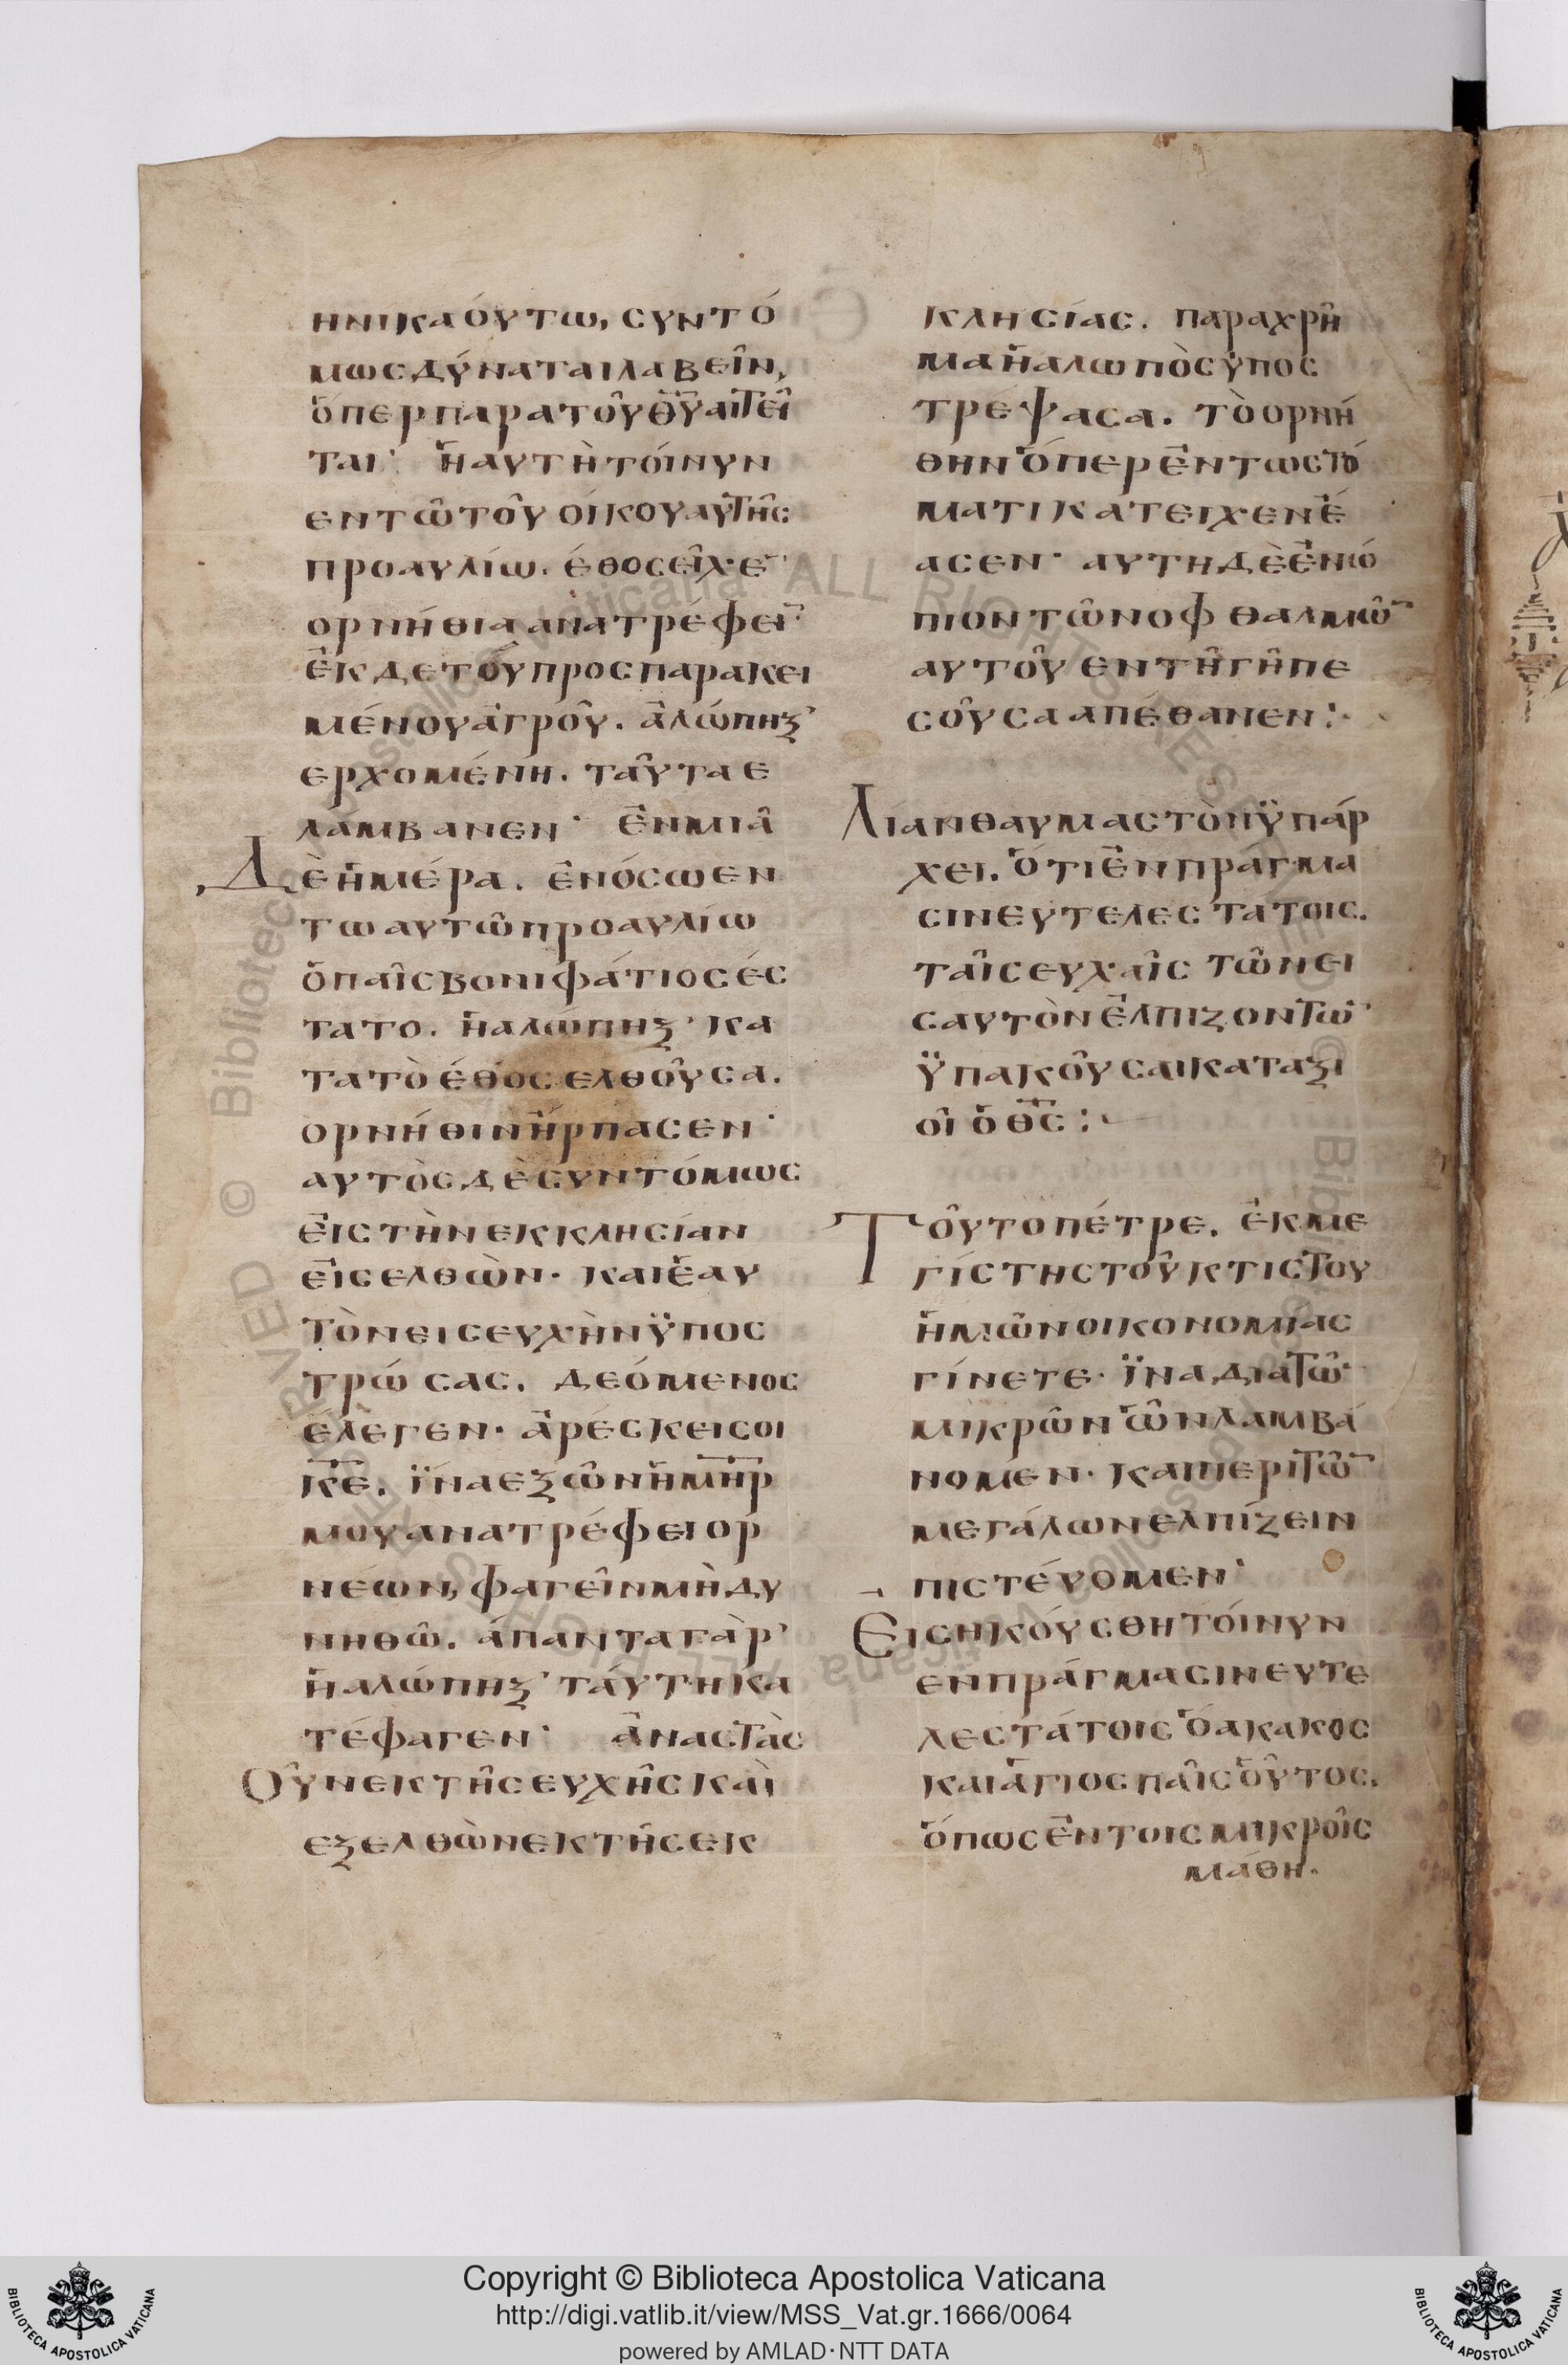 ηνίκα όυτω, συντό
μως δύναται λαβεῖν,
ὅπερ παρα τοῦ θῦ αἰτεῖ
ται· ἡ αυτὴ τόινυν
εν τῶ τοῦ όικου αὐτῆς
προαυλίω. έθος εῖχε
ορνήθια ανατρέφειν·
ἐκ δε τοῦ προσπαρακει
μένου ἀγροῦ. ἀλώπηξ
ερχομένη. ταῦτα ε
λάμβανεν· ἐν μιᾶ
Δὲ ἡμέρα. ἐν όσω εν
τω αυτῶ προαυλίω
ὁ παῖς βονιφάτιος ές
τατο. ἡ αλώπηξ κα
τα τὸ έθος ελθοῦσα.
ορνήθιν ἥρπασεν·
αυτὸς δὲ συντόμως
ἐις τὴν εκκλησίαν
ἐισελθὼν· και ἑαυ
τὸν εις ευχὴν ϋπος
τρώσας. δεόμενος
έλεγεν· ἀρέσκει σοι
κε. ϊνα εξ ὧν ἡ μηρ
μου ανατρέφει ορ
νέων, φαγεῖν μὴ δυ
νηθῶ. άπαντα γὰρ
ἡ αλώπηξ τάυτη κα
τέφαγεν· ἀναστὰς
Οῦν εκ τῆς ευχῆς καὶ
εξελθὼν εκ τῆς εκ
κλησίας. παραχρῆ
μα ἡ αλωπὸς ὑπος
τρέψασα. τὸ ορνή
θην ὅπερ ἐν τω στό
ματι κατειχεν ἐέ
ασεν· αυτη δὲ ἐνώ
πιον τῶν οφθαλμῶν
αυτοῦ εν τῆ γῆ πε
σοῦσα απέθανεν:·
Λίαν θαυμαστὸν ϋπάρ
χει. ὅτι ἐν πράγμα
σιν ευτελεστατοις.
ταῖς ευχαῖς τῶν ει
ς αυτὸν ἐλπιζοντων
ϋπακοῦσαι καταξι
οῖ ὁ θς:
Τοῦτο πέτρε. ἐκ με
γίστης τοῦ κτίστου
ἡμῶν οικονομίας
γίνετε· ϊνα δια τῶν
μικρῶν ὧν λαμβά
νομεν· και περι τῶν
μεγάλων ελπίζειν
πιστέυομεν·
Εισηκούσθη τόινυν
εν πράγμασιν ευτε
λεστάτοις ὁ ακακος
και ἅγιος παῖς οὗτος.
ὅπως ἐν τοις μικροῖς
μάθη.
ALL RIGHTS RESERVED © Biblioteca Apostolica Vaticana
Copyright © Biblioteca Apostolica Vaticana
http://digi.vatlib.it/view/MSS_Vat.gr.1666/0064
powered by AMLAD·NTT DATA
BIBLIOTECA APOSTOLICA VATICANA
BIBLIOTECA APOSTOLICA VATICANA